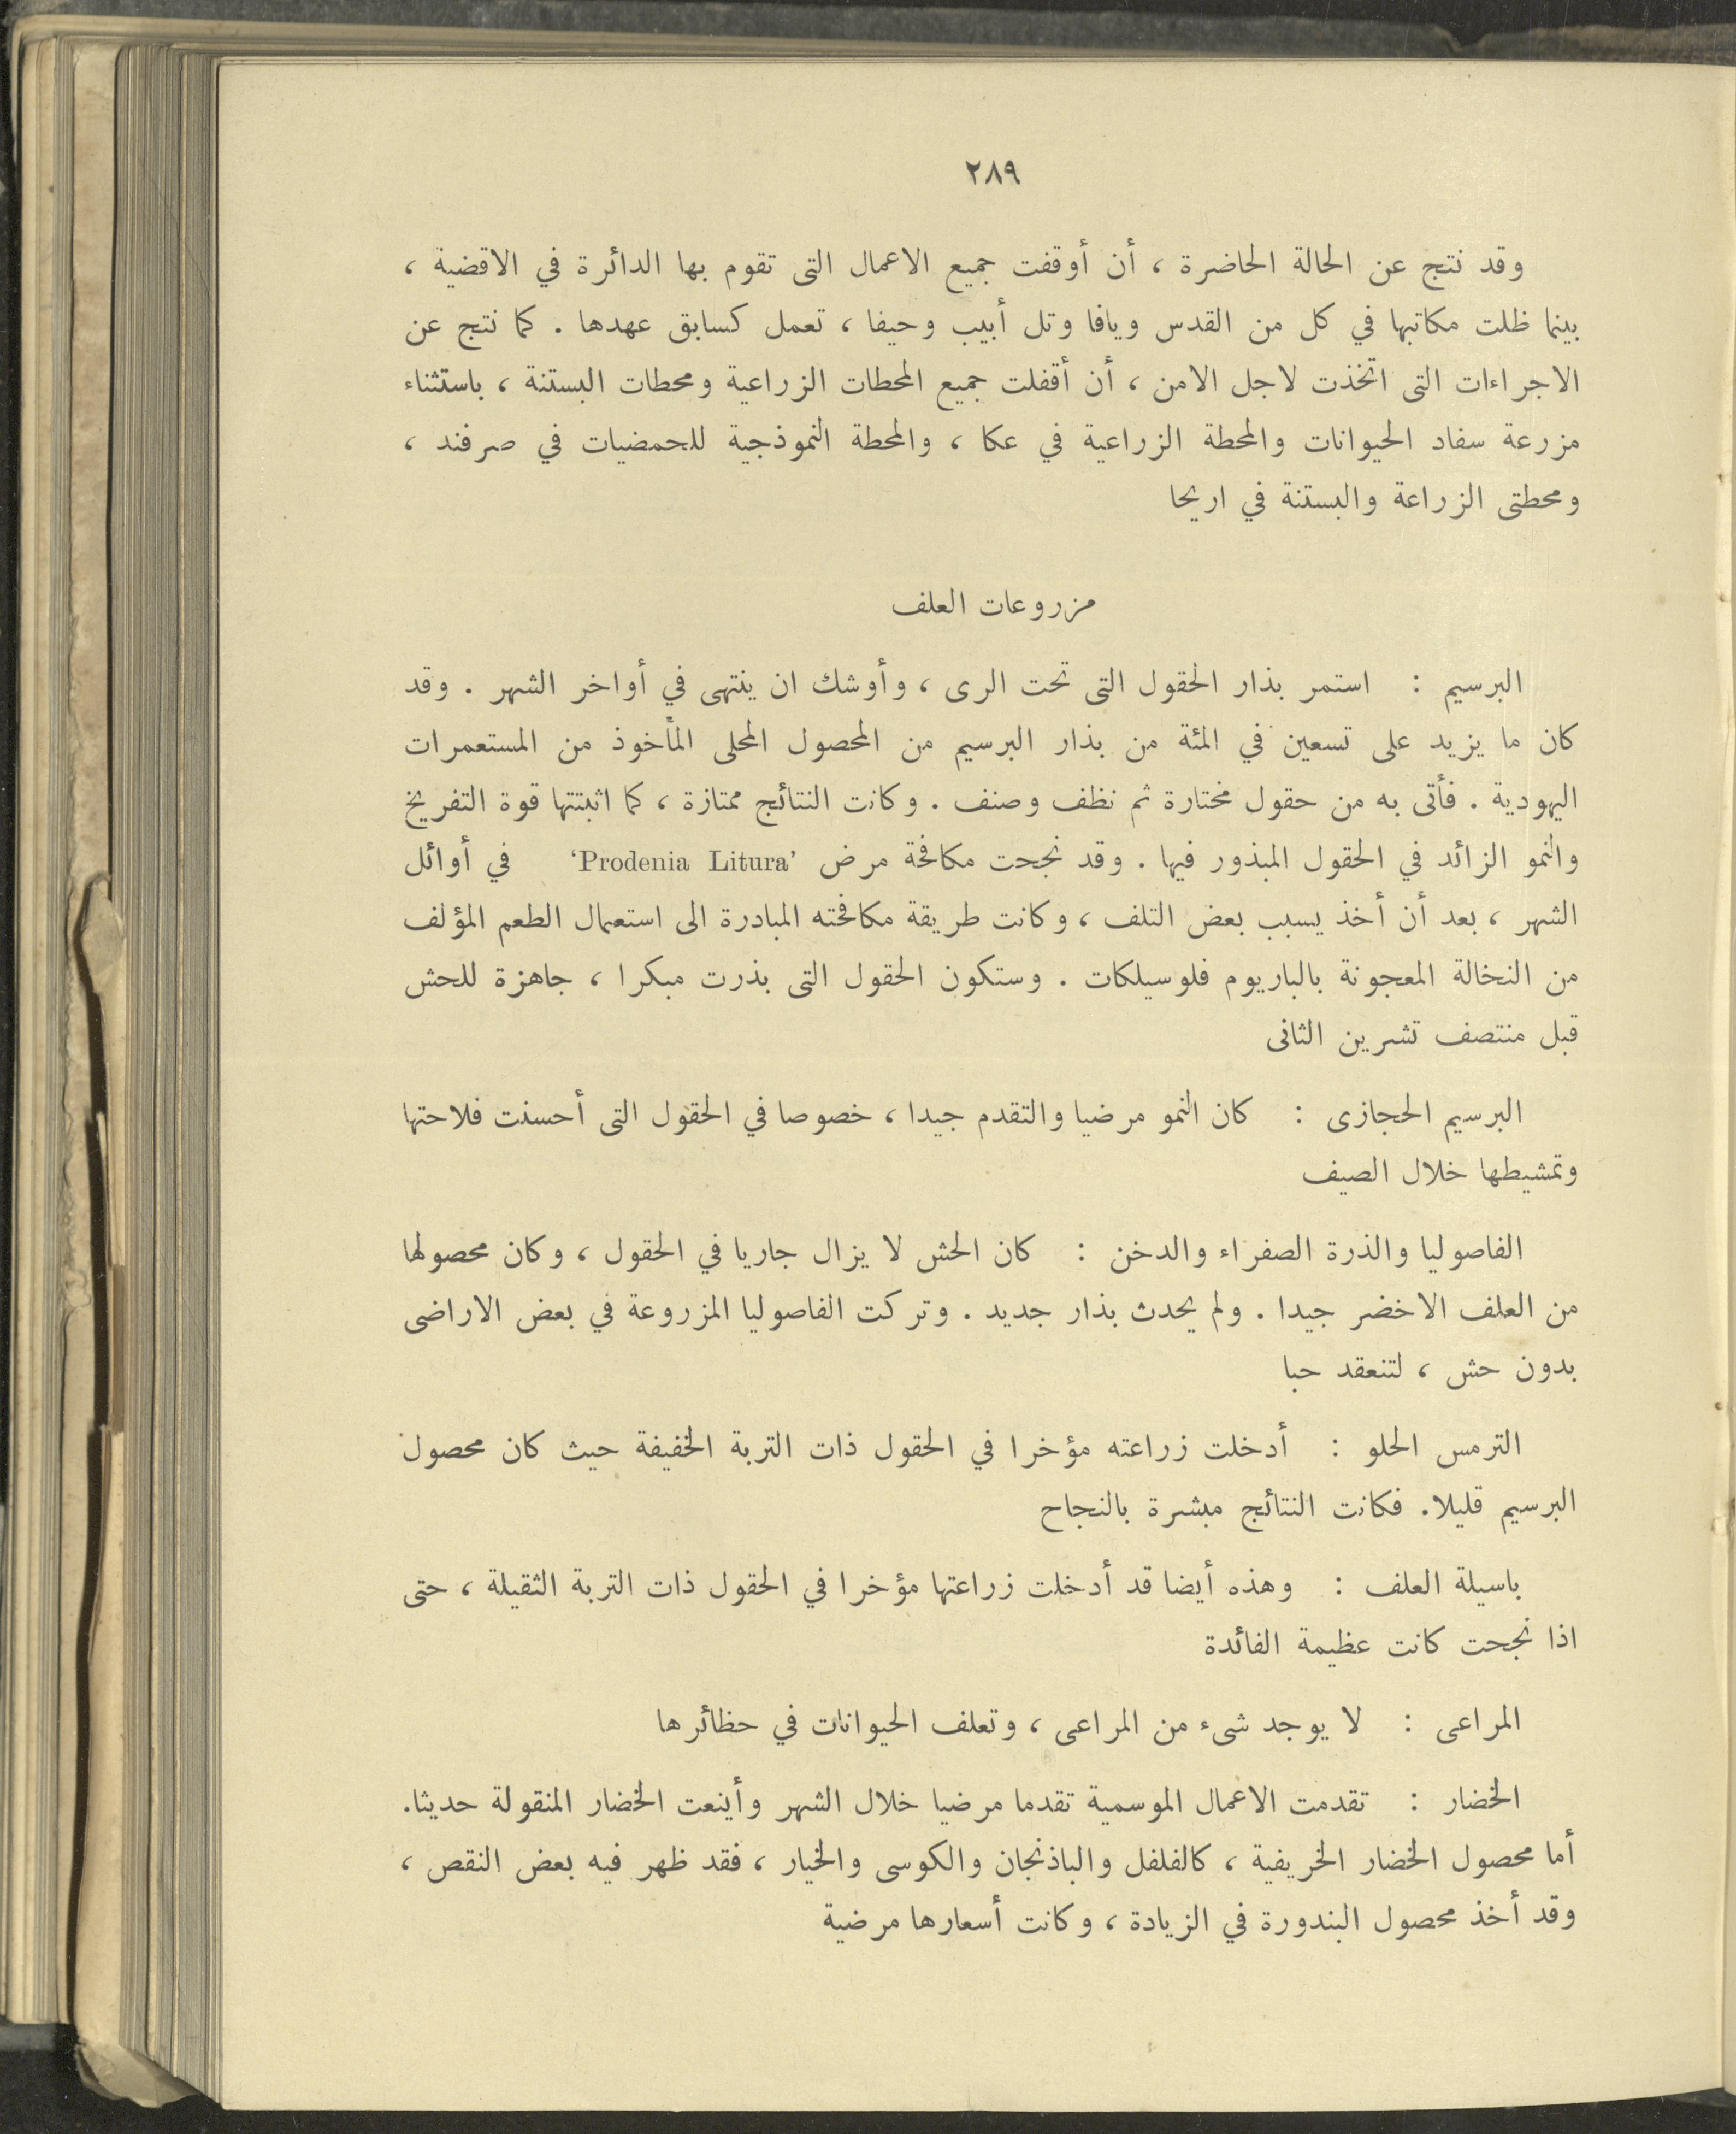 ٢٨٩
وقد نتج عن الحالة الحاضرة ، أن أوقفت جميع الاعمال التى تقوم بها الدائرة في الاقضية ،
بينما ظلت مكاتبها في كل من القدس ويافا وتل أبيب وحيفا ، تعمل كسابق عهدها . كما نتج عن
الاجراءات التى اتخذت لاجل الامن ، أن أقفلت جميع المحطات الزراعية ومحطات البستنة ، باستثناء
مزرعة سفاد الحيوانات والمحطة الزراعية في عكا ، والمحطة النموذجية للحمضيات في صرفند ،
ومحطتى الزراعة والبستنة في اريحا
مزروعات العلف
البرسيم : استمر بذار الحقول التى تحت الرى ، وأوشك ان ينتهى في أواخر الشهر . وقد
كان ما يزيد على تسعين في المئة من بذار البرسيم من المحصول المحلى المأخوذ من المستعمرات
اليهودية . فأتى به من حقول مختارة ثم نظف وصنف . وكانت النتائج ممتازة ، كما اثبتتها قوة التفريخ
والنمو الزائد في الحقول المبذور فيها . وقد نجحت مكافحة مرض ‘Prodenia Litura’ في أوائل
الشهر ، بعد أن أخذ يسبب بعض التلف ، وكانت طريقة مكافحته المبادرة الى استعمال الطعم المؤلف
من النخالة المعجونة بالباريوم فلوسيلكات . وستكون الحقول التى بذرت مبكرا ، جاهزة للحش
قبل منتصف تشرين الثانى
البرسيم الحجازى : كان النمو مرضيا والتقدم جيدا ، خصوصا في الحقول التى أحسنت فلاحتها
وتمشيطها خلال الصيف
الفاصوليا والذرة الصفراء والدخن : كان الحش لا يزال جاريا في الحقول ، وكان محصولها
من العلف الاخضر جيدا . ولم يحدث بذار جديد . وتركت الفاصوليا المزروعة في بعض الاراضى
بدون حش ، لتنعقد حبا
الترمس الحلو : أدخلت زراعته مؤخرا في الحقول ذات التربة الخفيفة حيث كان محصول
البرسيم قليلا. فكانت النتائج مبشرة بالنجاح
باسيلة العلف : وهذه أيضا قد أدخلت زراعتها مؤخرا في الحقول ذات التربة الثقيلة ، حتى
اذا نجحت كانت عظيمة الفائدة
المراعى : لا يوجد شىء من المراعى ، وتعلف الحيوانات في حظائرها
الخضار : تقدمت الاعمال الموسمية تقدما مرضيا خلال الشهر وأينعت الخضار المنقولة حديثا.
أما محصول الخضار الخريفية ، كالفلفل والباذنجان والكوسى والخيار ، فقد ظهر فيه بعض النقص ،
وقد أخذ محصول البندورة في الزيادة ، وكانت أسعارها مرضية